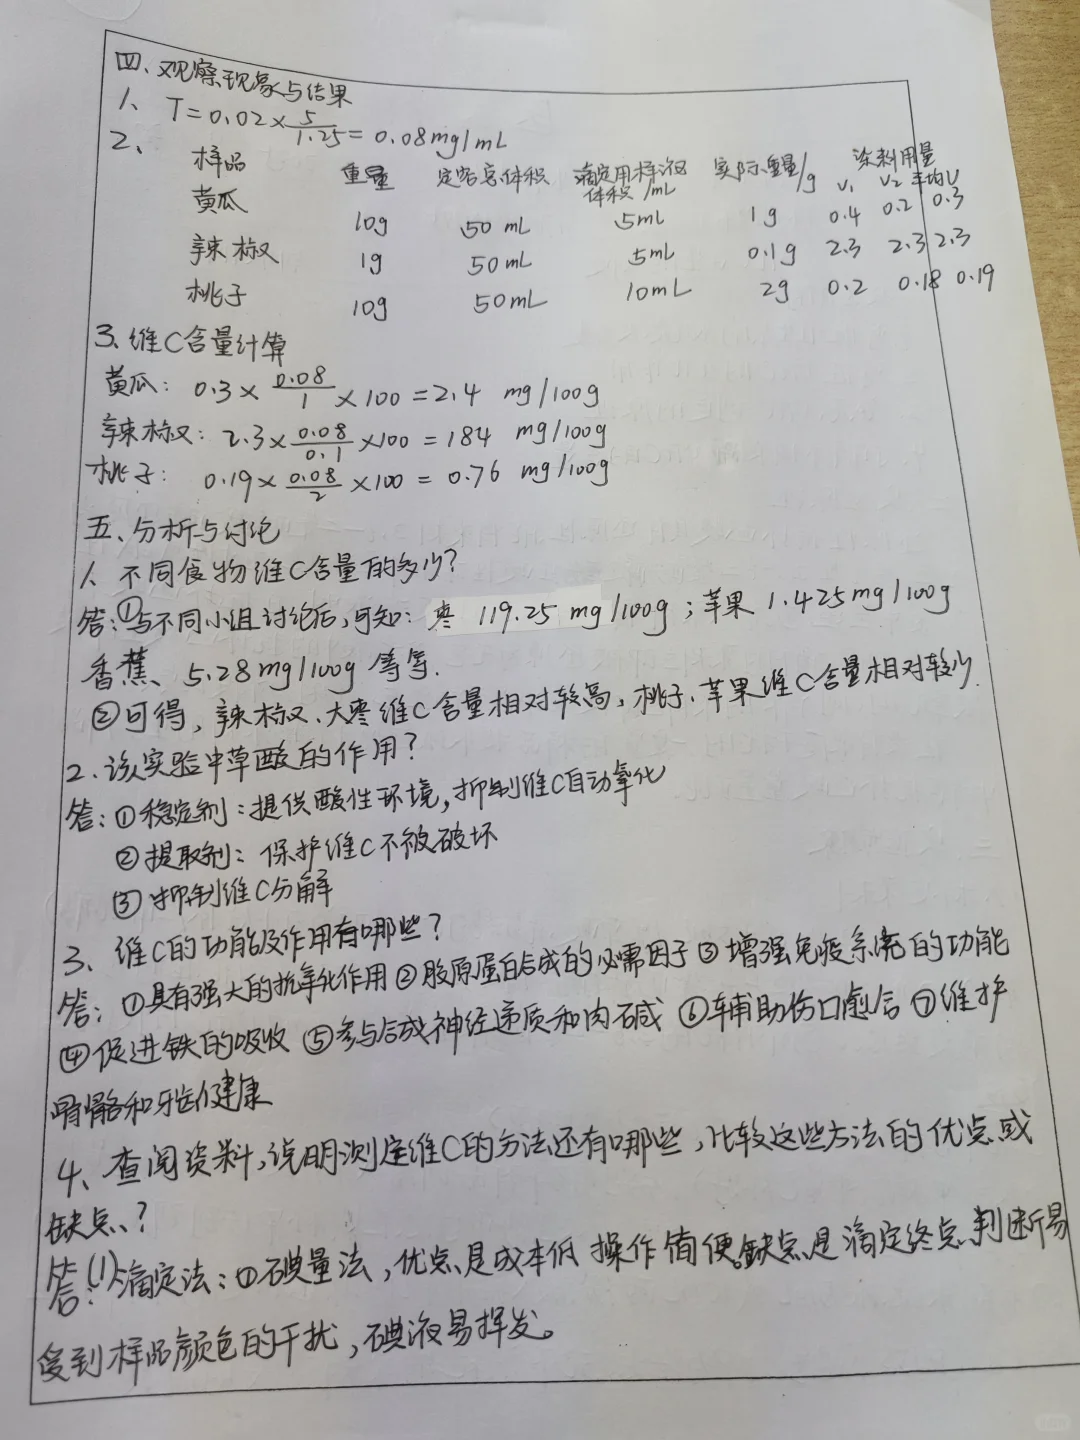 四、观察现象与结果
1、 T=0.02×5/1.25=0.08mg/mL
2、 样品 重量 定容后体积 滴定用样液体积/mL 实际重量/g 染料用量 V₁ V₂ 平均V
黄瓜 10g 50mL 5mL 1g 0.4 0.2 0.3
辣椒 1g 50mL 5mL 0.1g 2.3 2.3 2.3
桃子 10g 50mL 10mL 2g 0.2 0.18 0.19
3、维C含量计算
黄瓜: 0.3×0.08/1×100=2.4 mg/100g
辣椒: 2.3×0.08/0.1×100=184 mg/100g
桃子: 0.19×0.08/2×100=0.76 mg/100g
五、分析与讨论
1、不同食物维C含量的多少?
答:①与不同小组讨论后,可知: 枣 119.25 mg/100g;苹果 1.425mg/100g
香蕉、5.28mg/100g 等等.
②可得,辣椒、大枣维C含量相对较高,桃子、苹果维C含量相对较少.
2、该实验中草酸的作用?
答:①稳定剂:提供酸性环境,抑制维C自动氧化
②提取剂:保护维C不被破坏
③抑制维C分解
3、维C的功能及作用有哪些?
答:①具有强大的抗氧化作用②胶原蛋白合成的必需因子③增强免疫系统的功能
④促进铁的吸收 ⑤参与合成神经递质和肉碱 ⑥辅助伤口愈合⑦维护
骨骼和牙齿健康
4、查阅资料,说明测定维C的方法还有哪些,比较这些方法的优点或
缺点、?
答:(1)滴定法:①碘量法,优点是成本低 操作简便。缺点是滴定终点判断易
受到样品颜色的干扰,碘液易挥发。